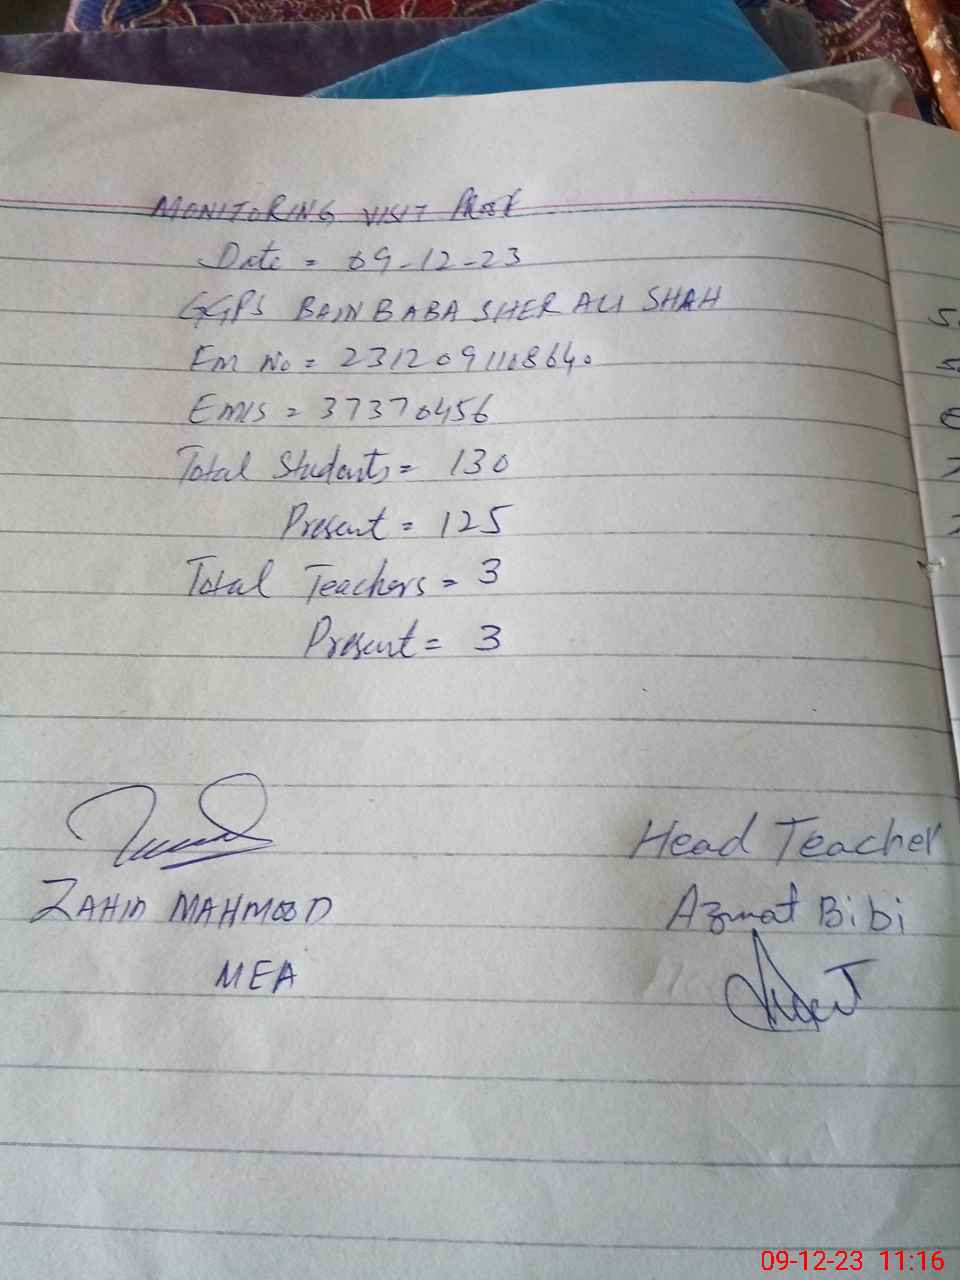 MONITORING VISIT PROOF
Date = 09-12-23
GGPS BAIN BABA SHER ALI SHAH
Em No = 2312091108640
Emis = 37370456
Total Students = 130
Present = 125
Total Teachers = 3
Present = 3
ZAHID MAHMOOD
MEA
Head Teacher
Azmat Bibi
09-12-23 11:16